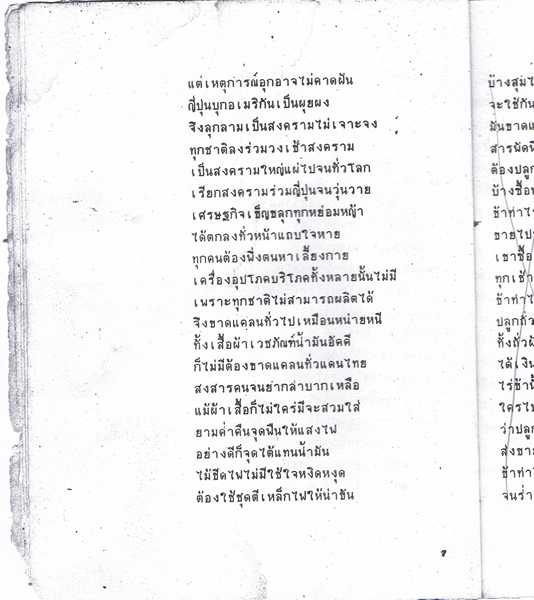 แต่เหตุการณ์อุกอาจไม่คาดฝัน
ญี่ปุ่นบุกอเมริกันเป็นผุยผง
จึงลุกลามเป็นสงครามไม่เจาะจง
ทุกชาติลงร่วมวงเข้าสงคราม
เป็นสงครามใหญ่แผ่ไปจนทั่วโลก
เรียกสงครามร่วมญี่ปุ่นจนวุ่นวาย
เศรษฐกิจเข็ญขลุกทุกหย่อมหญ้า
ได้ตกลงทั่วหน้าแถบใจหาย
ทุกคนต้องพึ่งตนหาเลี้ยงกาย
เครื่องอุปโภคบริโภคทั้งหลายนั้นไม่มี
เพราะทุกชาติไม่สามารถผลิตได้
จึงขาดแคลนทั่วไปเหมือนหน่ายหนี
ทั้งเสื้อผ้าเวชภัณฑ์น้ำมันอัคคี
ก็ไม่มีต้องขาดแคลนทั่วแดนไทย
สงสารคนจนยากลำบากเหลือ
แม้ผ้าเสื้อก็ไม่ใคร่มีจะสวมใส่
ยามค่ำคืนจุดฟืนให้แสงไฟ
อย่างดีก็จุดไต้แทนน้ำมัน
ไม้ขีดไฟไม่มีใช้ใจหงิดหงุด
ต้องใช้ชุดตีเหล็กไฟให้น่าขัน
7
บ้างสุมไ
จะใช้กัน
มันขาดแ
สารพัดพื
ต้องปลูก
บ้างซื้อ
ข้าท่าไ
ขายไป
เขาซื้อ
ทุกเช้า
ข้าท่าไ
ปลูกถั่ว
ทั้งถั่วผ
ได้เงิน
ไร่ข้านั้
ใครไป
ว่าปลูก
ส่งขา
ข้าท่าไ
จนร่ำ